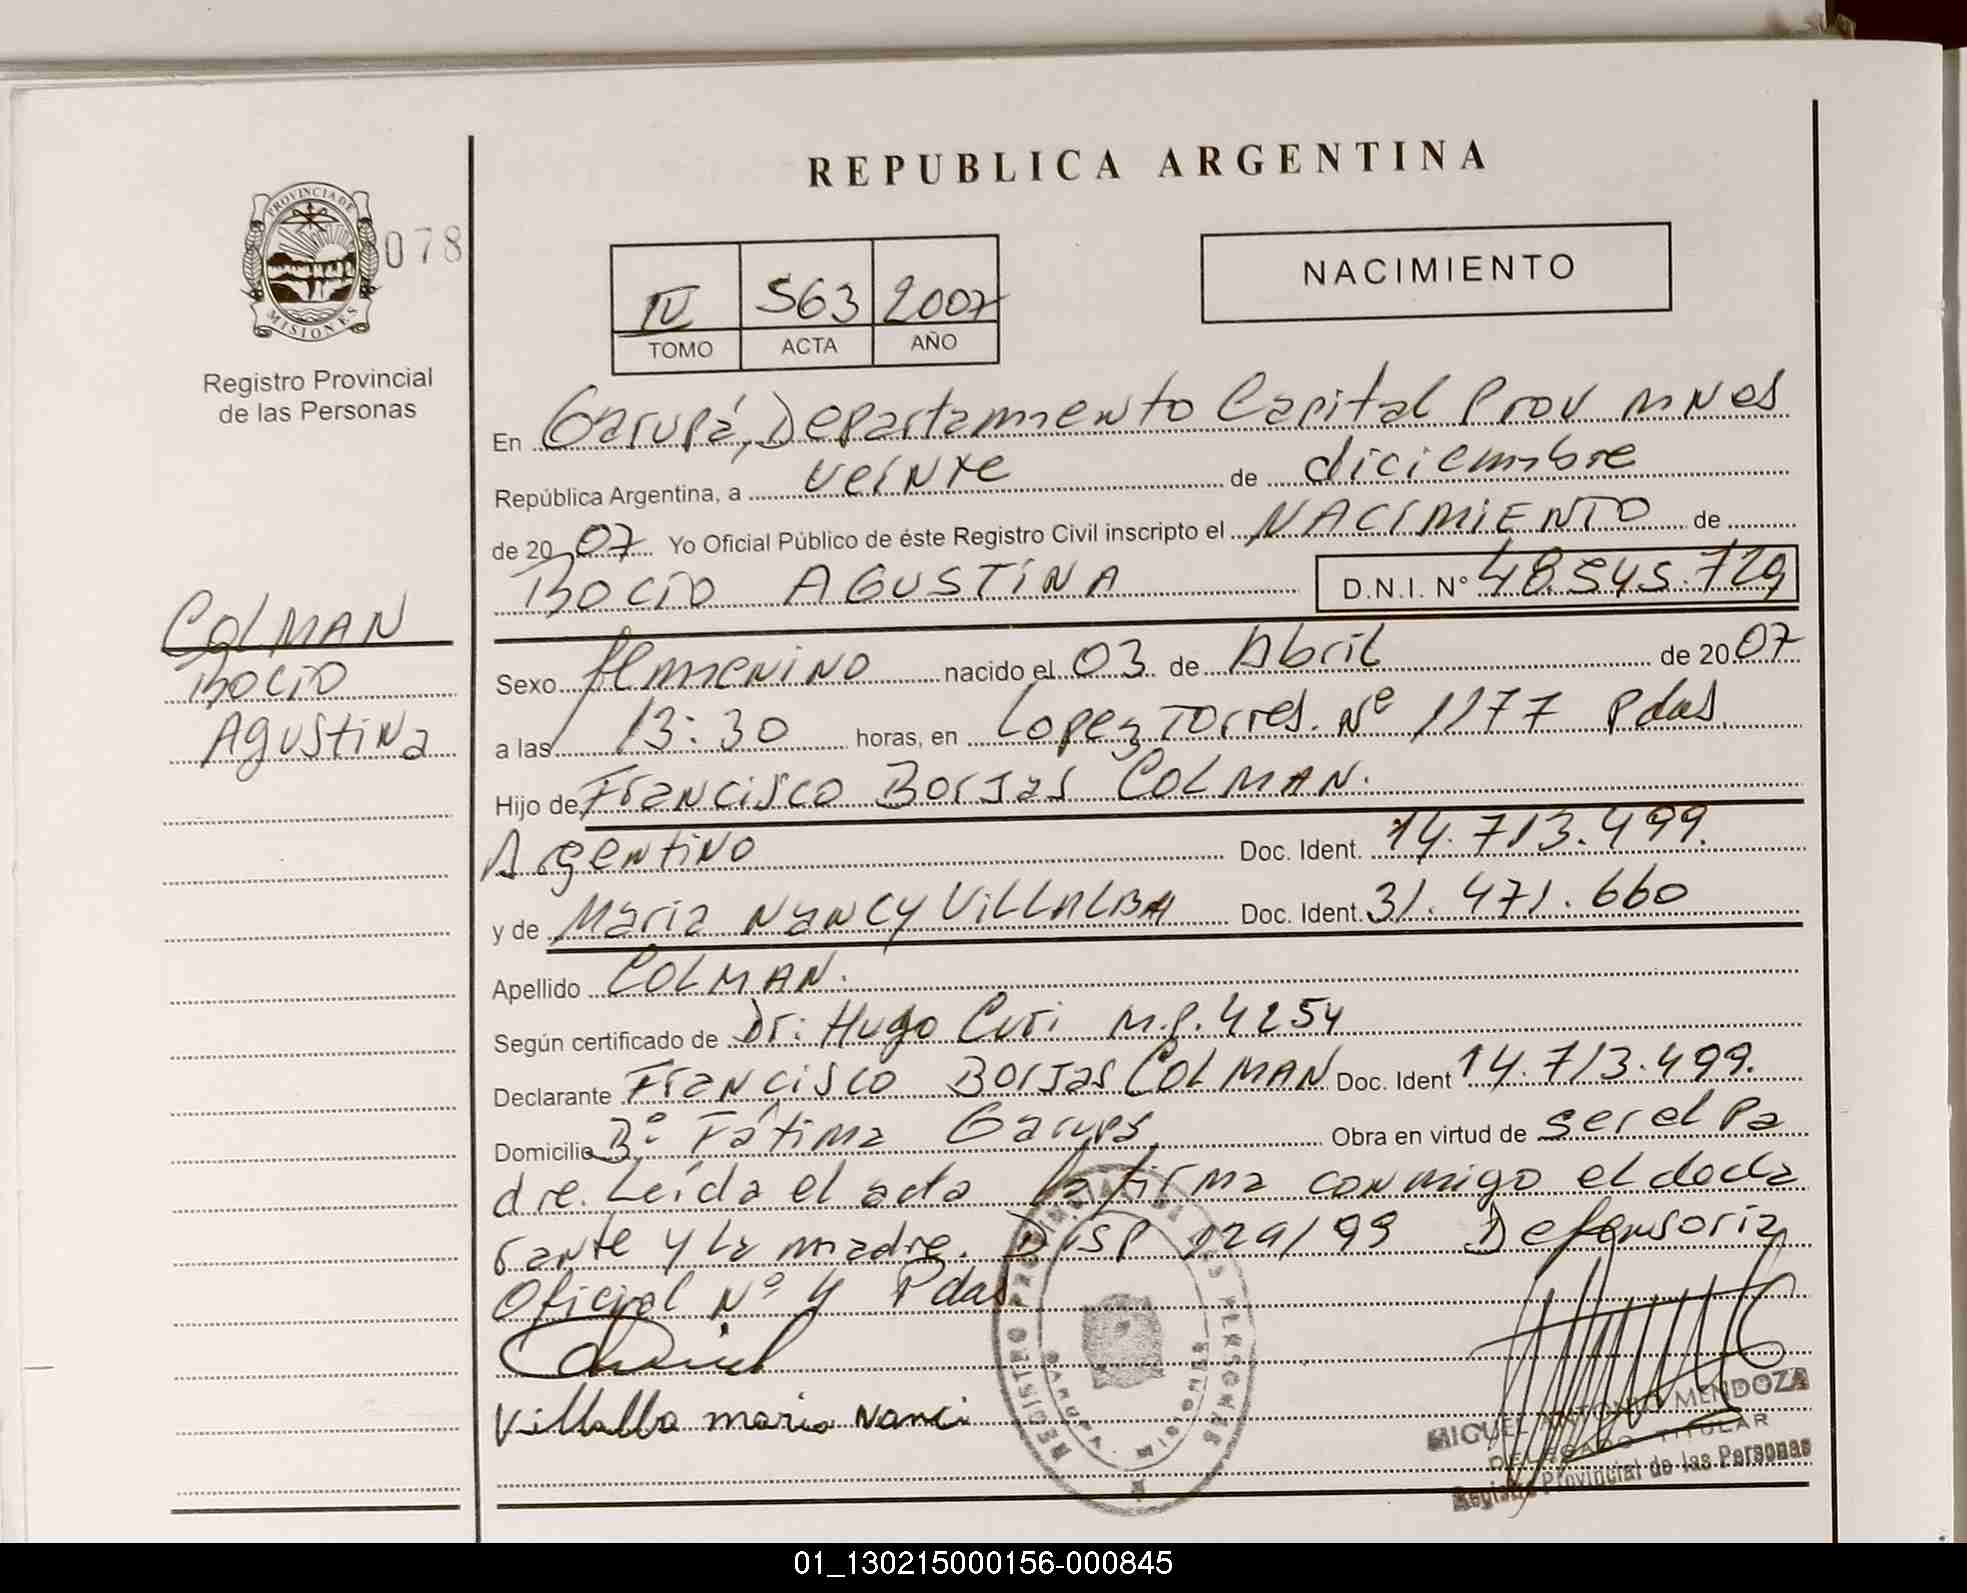 REPUBLICA ARGENTINA
PROVINCIA DE
MISIONES
078
Registro Provincial
de las Personas
IV 563 2007
TOMO ACTA AÑO
NACIMIENTO
En Garupá, Departamento Capital Prov Mnes
República Argentina, a veinte de diciembre
de 2007 Yo Oficial Público de éste Registro Civil inscripto el NACIMIENTO de
ROCIO AGUSTINA D.N.I. Nº 48.545.729
COLMAN
ROCIO
Agustina
Sexo femenino nacido el 03 de Abril de 2007
a las 13:30 horas, en Lopez Torres. Nº 1177 Pdas.
Hijo de Francisco Borjas COLMAN.
Argentino Doc. Ident. 14.713.499.
y de Maria Nancy VILLALBA Doc. Ident. 31.471.660
Apellido COLMAN.
Según certificado de Dr: Hugo Curi M.P. 4254
Declarante Francisco Borjas COLMAN Doc. Ident 14.713.499.
Domicilio Bº Fátima Garupá Obra en virtud de ser el Pa
dre. Leída el acta la firma conmigo el decla
rante y la madre. DISP 129/99 Defensoria
Oficial Nº 4 Pdas
Villalba maria Nanci
REGISTRO PROVINCIAL DE LAS PERSONAS
GARUPA MISIONES
MIGUEL ANTONIO MENDOZA
DELEGADO TITULAR
Registro Provincial de las Personas
01_130215000156-000845